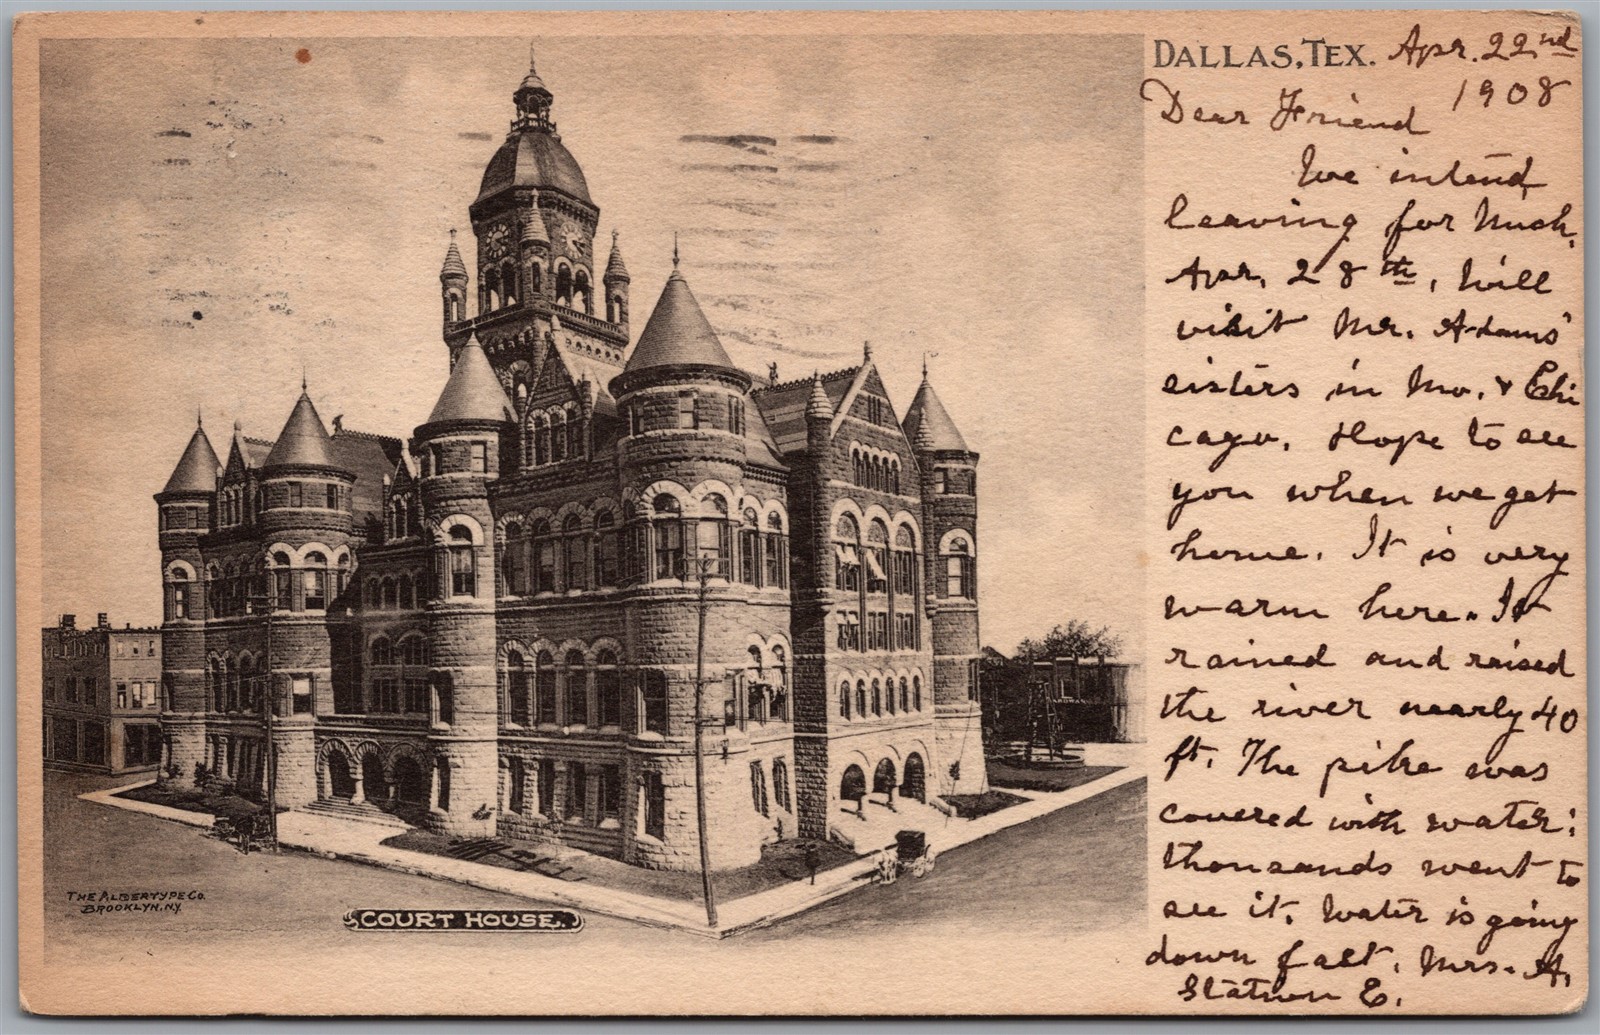 DALLAS, TEX. Apr. 22nd
1908
Dear Friend
We intend
leaving for Mich.
Apr. 28th. Will
visit Mr. Adams'
sisters in Mo. & Chi
cago. Hope to see
you when we get
home. It is very
warm here. It
rained and raised
the river nearly 40
ft. The pike was
covered with water;
thousands went to
see it. Water is going
down fast. Mrs. A.
Station E.
THE ALBERTYPE CO.
BROOKLYN, N.Y.
COURT HOUSE.